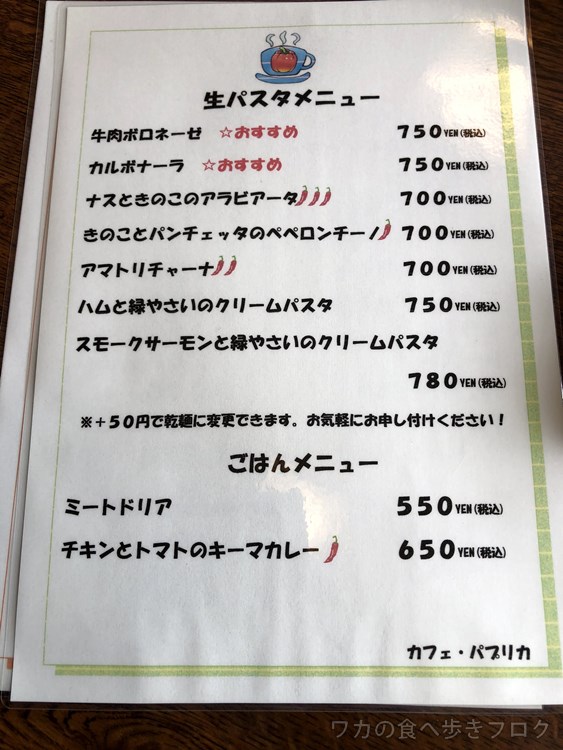 生パスタメニュー
牛肉ボロネーゼ ☆おすすめ 750YEN(税込)
カルボナーラ ☆おすすめ 750YEN(税込)
ナスときのこのアラビアータ 700YEN(税込)
きのことパンチェッタのペペロンチーノ 700YEN(税込)
アマトリチャーナ 700YEN(税込)
ハムと緑やさいのクリームパスタ 750YEN(税込)
スモークサーモンと緑やさいのクリームパスタ
780YEN(税込)
※+50円で乾麺に変更できます。お気軽にお申し付けください!
ごはんメニュー
ミートドリア 550YEN(税込)
チキンとトマトのキーマカレー 650YEN(税込)
カフェ・パプリカ
ワカの食べ歩きブログ